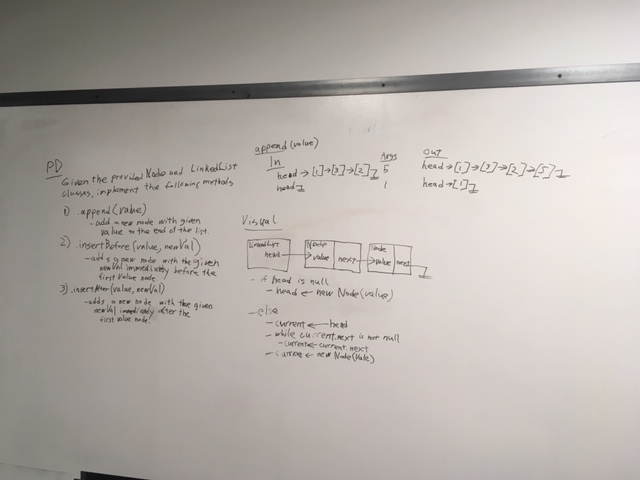 PD
Given the provided Node and LinkedList
classes, implement the following methods
1) .append(value)
- add a new node with given
value to the end of the list.
2) .insertBefore(value, newVal)
- adds a new node with the given
newVal immediately before the
first value node.
3) .insertAfter(value, newVal)
- adds a new node with the given
newVal immediately after the
first value node.
append(value)
In Args Out
head→[1]→[3]→[2] 5 head→[1]→[3]→[2]→[5]
head 1 head→[1]
Visual
LinkedList Node Node
head value next value next
- if head is null
- head ← new Node(value)
- else
- current ← head
- while current.next is not null
- current ← current.next
- current ← new Node(value)